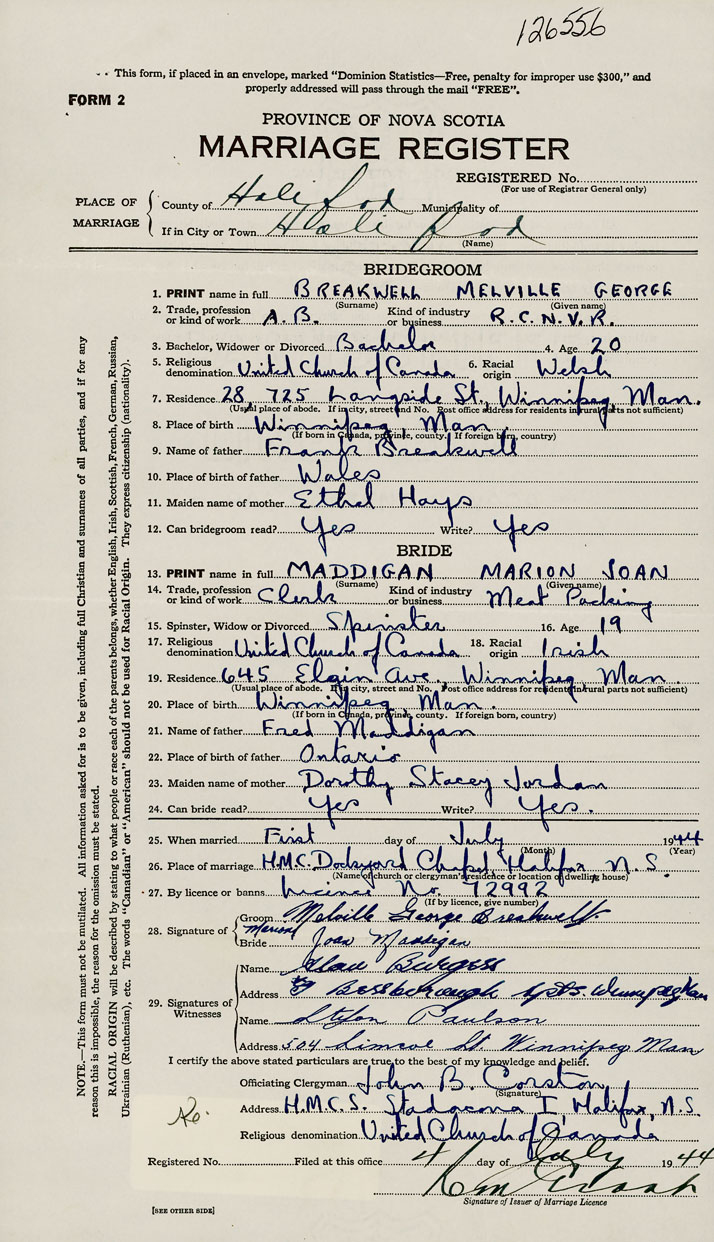 126556
- - This form, if placed in an envelope, marked "Dominion Statistics—Free, penalty for improper use $300," and
properly addressed will pass through the mail "FREE".
FORM 2
PROVINCE OF NOVA SCOTIA
MARRIAGE REGISTER
REGISTERED No.
(For use of Registrar General only)
PLACE OF MARRIAGE
County of Halifax Municipality of
If in City or Town Halifax
(Name)
BRIDEGROOM
1. PRINT name in full BREAKWELL MELVILLE GEORGE
(Surname) (Given name)
2. Trade, profession or kind of work A.B. Kind of industry or business R.C.N.V.R.
3. Bachelor, Widower or Divorced Bachelor 4. Age 20
5. Religious denomination United Church of Canada 6. Racial origin Welsh
7. Residence 28, 725 Langside St., Winnipeg Man.
(Usual place of abode. If in city, street and No. Post office address for residents in rural parts not sufficient)
8. Place of birth Winnipeg, Man.
(If born in Canada, province, county. If foreign born, country)
9. Name of father Frank Breakwell
10. Place of birth of father Wales
11. Maiden name of mother Ethel Hays
12. Can bridegroom read? Yes Write? Yes
BRIDE
13. PRINT name in full MADDIGAN MARION JOAN
(Surname) (Given name)
14. Trade, profession or kind of work Clerk Kind of industry or business Meat Packing
15. Spinster, Widow or Divorced Spinster 16. Age 19
17. Religious denomination United Church of Canada 18. Racial origin Irish
19. Residence 645 Elgin Ave., Winnipeg, Man.
(Usual place of abode. If in city, street and No. Post office address for residents in rural parts not sufficient)
20. Place of birth Winnipeg, Man.
(If born in Canada, province, county. If foreign born, country)
21. Name of father Fred Maddigan
22. Place of birth of father Ontario
23. Maiden name of mother Dorothy Stacey Jordan
24. Can bride read? Yes Write? Yes.
25. When married First day of July 1944
(Month) (Year)
26. Place of marriage H.M.C. Dockyard Chapel, Halifax, N.S.
(Name of church or clergyman's residence or location of dwelling house)
27. By licence or banns Licence No. 72992
(If by licence, give number)
28. Signature of
Groom Melville George Breakwell
Bride Marion Joan Maddigan
29. Signatures of Witnesses
Name Burgess
Address Bessborough Apts. Winnipeg Man
Name Paulson
Address 504 Simcoe St Winnipeg Man
I certify the above stated particulars are true to the best of my knowledge and belief.
Officiating Clergyman John B. Corston
(Signature)
Address H.M.C.S. Stadacona I, Halifax, N.S.
Religious denomination United Church of Canada
Registered No. Filed at this office 4 day of July 1944
Signature of Issuer of Marriage Licence
[SEE OTHER SIDE]
NOTE.—This form must not be mutilated. All information asked for is to be given, including full Christian and surnames of all parties, and if for any
reason this is impossible, the reason for the omission must be stated.
RACIAL ORIGIN will be described by stating to what people or race each of the parents belongs, whether English, Irish, Scottish, French, German, Russian,
Ukrainian (Ruthenian), etc. The words "Canadian" or "American" should not be used for Racial Origin. They express citizenship (nationality).